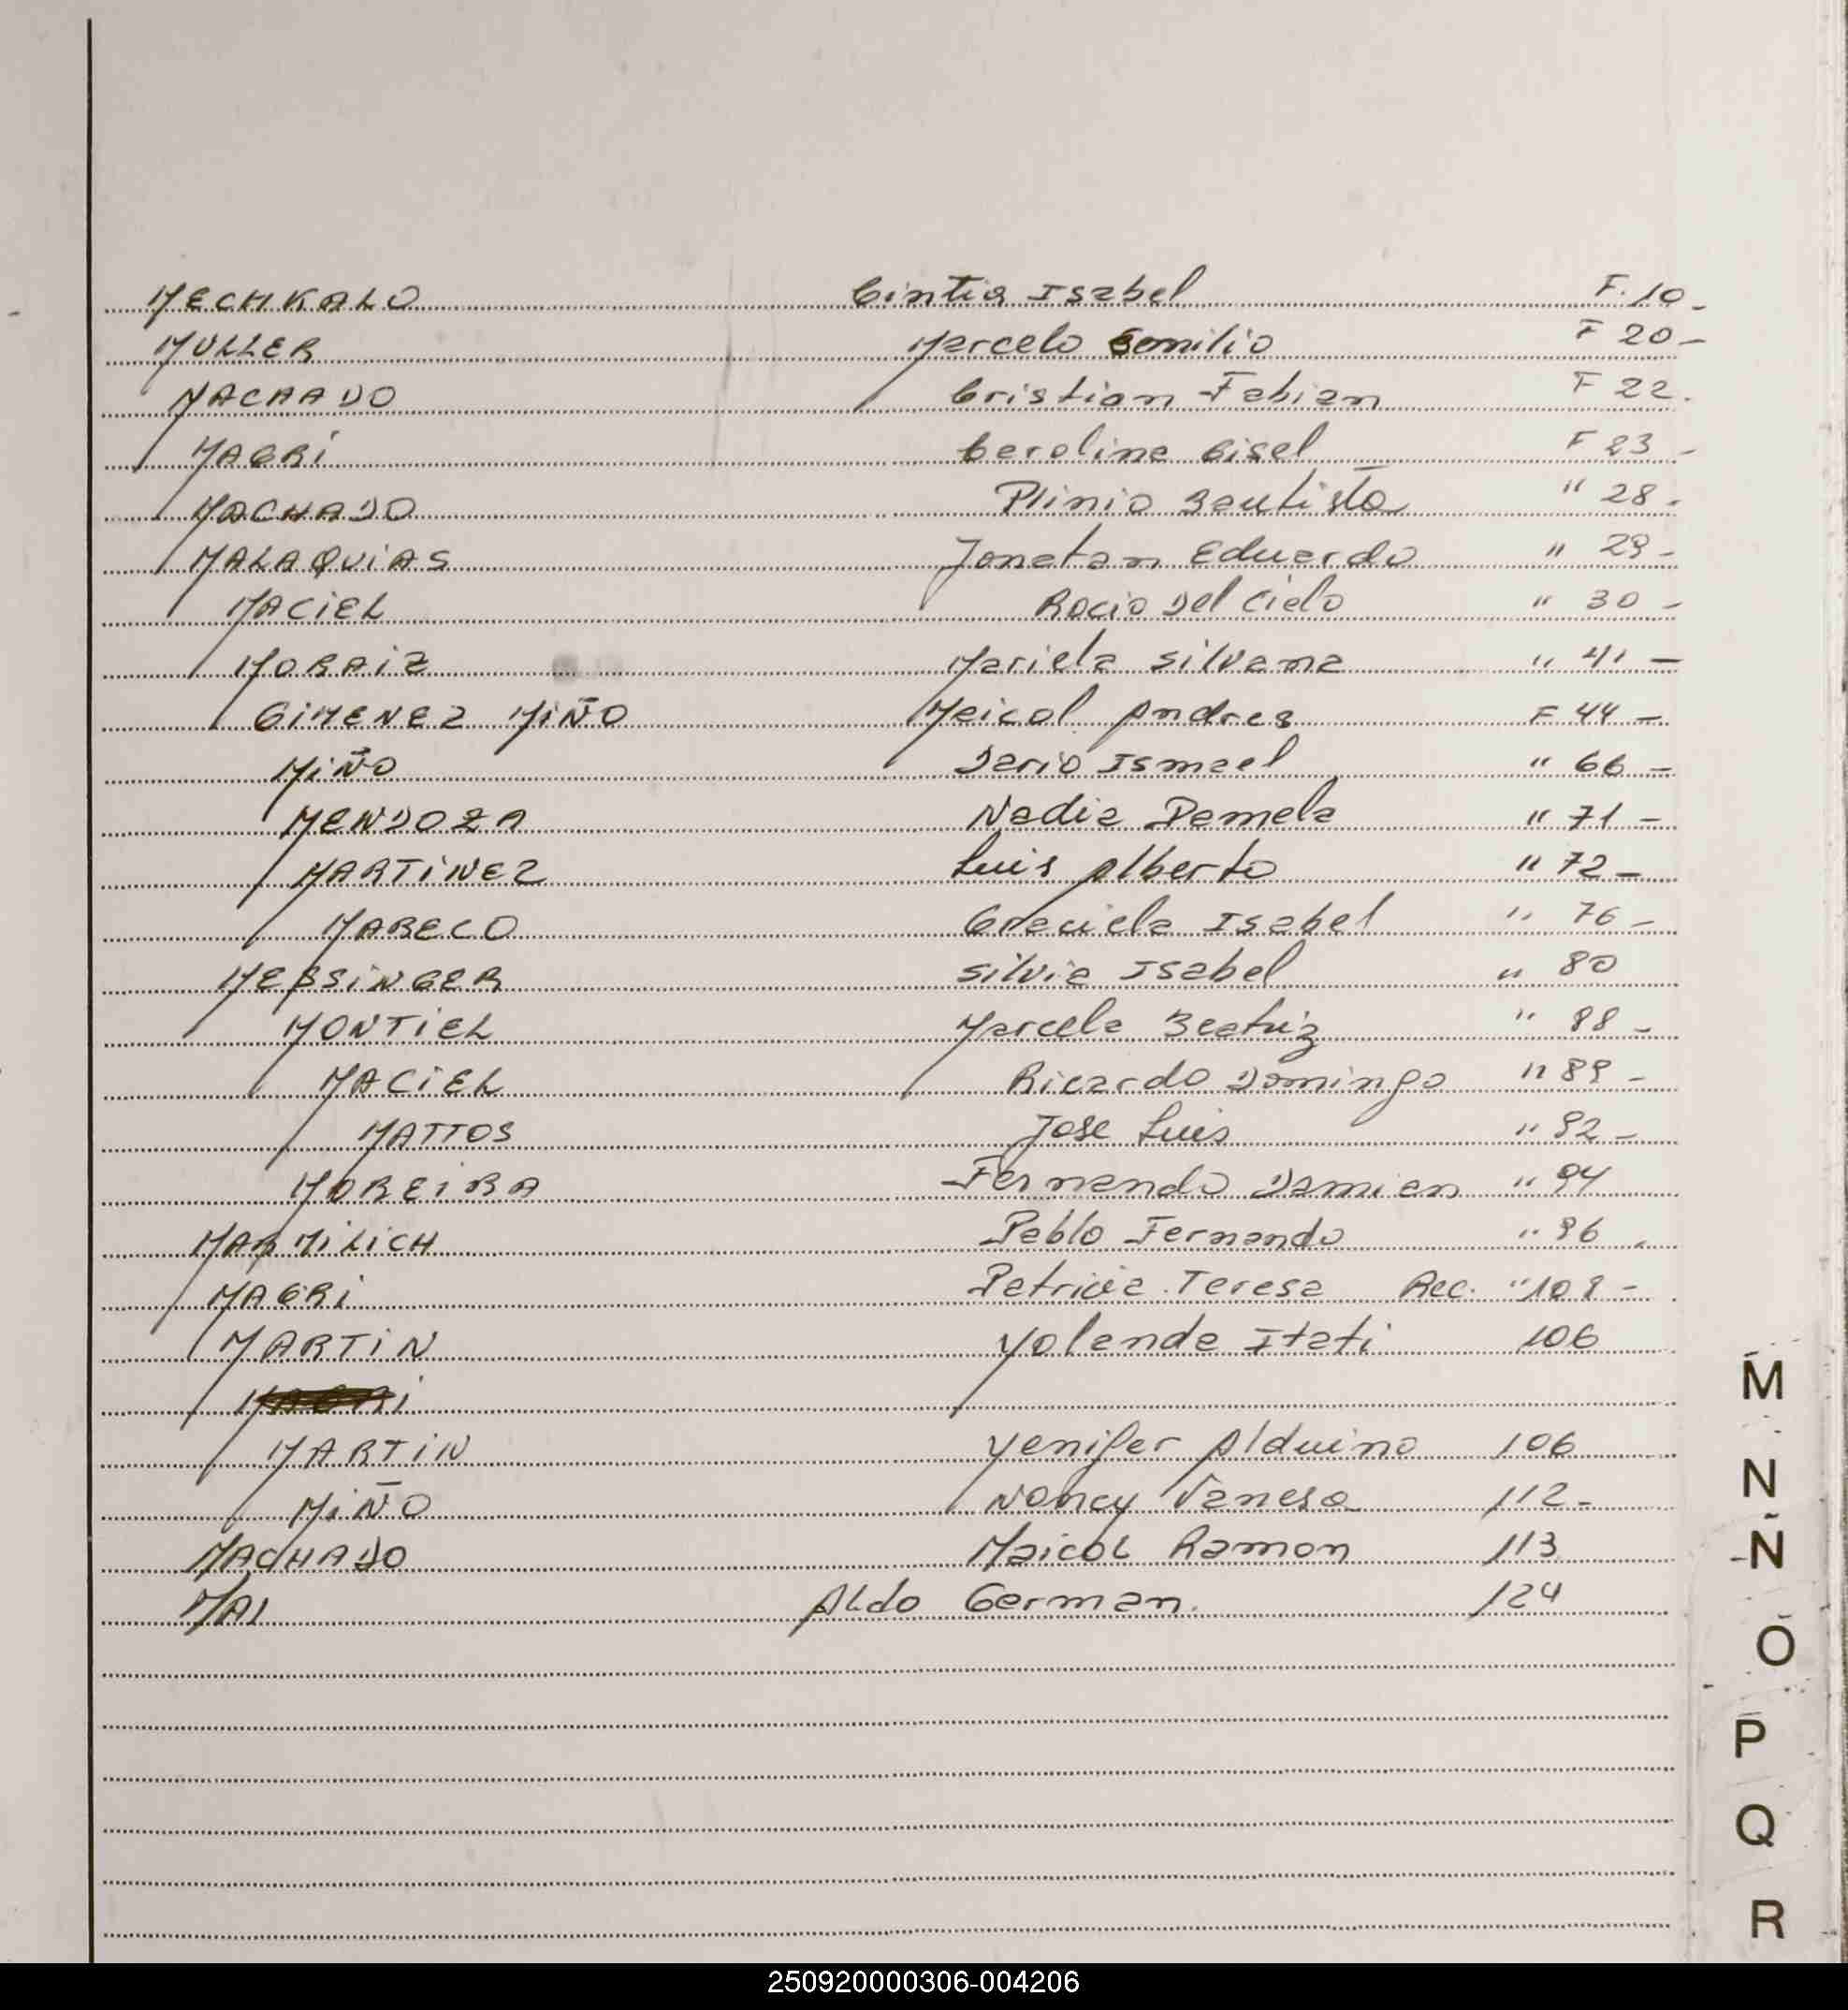 MECHKALO Cintia Isabel F. 10 -
MULLER Marcelo Emilio F 20 -
MACHADO Cristian Fabian F 22.
MAGRi Carolina Gisel F 23 -
MACHADO Plinio Bautista " 28 -
MALAQUiAS Jonatan Eduardo " 29 -
MACiEL Rocio Del Cielo " 30 -
MORAiZ Mariela Silvana " 41 -
GiMENEZ MiÑO Meicol Andres F 44 -
MiÑO Dario Ismael " 66 -
MENDOZA Nadia Pamela " 71 -
MARTiNEZ Luis Alberto " 72 -
MARECO Graciela Isabel " 76 -
MESSiNGER Silvia Isabel " 80
MONTiEL Marcela Beatriz " 88 -
MACiEL Ricardo Domingo " 89 -
MATTOS Jose Luis " 92 -
MOREiRA Fernando Damian " 94
MARMiLiCH Pablo Fernando " 96 -
MAGRi Patricia Teresa Rec. " 109 -
MARTiN Yolanda Itati 106
MAGRi
MARTiN Yenifer Alduina 106
MiÑO Nancy Vanesa 112 -
MACHADO Maicol Ramon 113
MAI Aldo German. 124
M
N
Ñ
O
P
Q
R
250920000306-004206